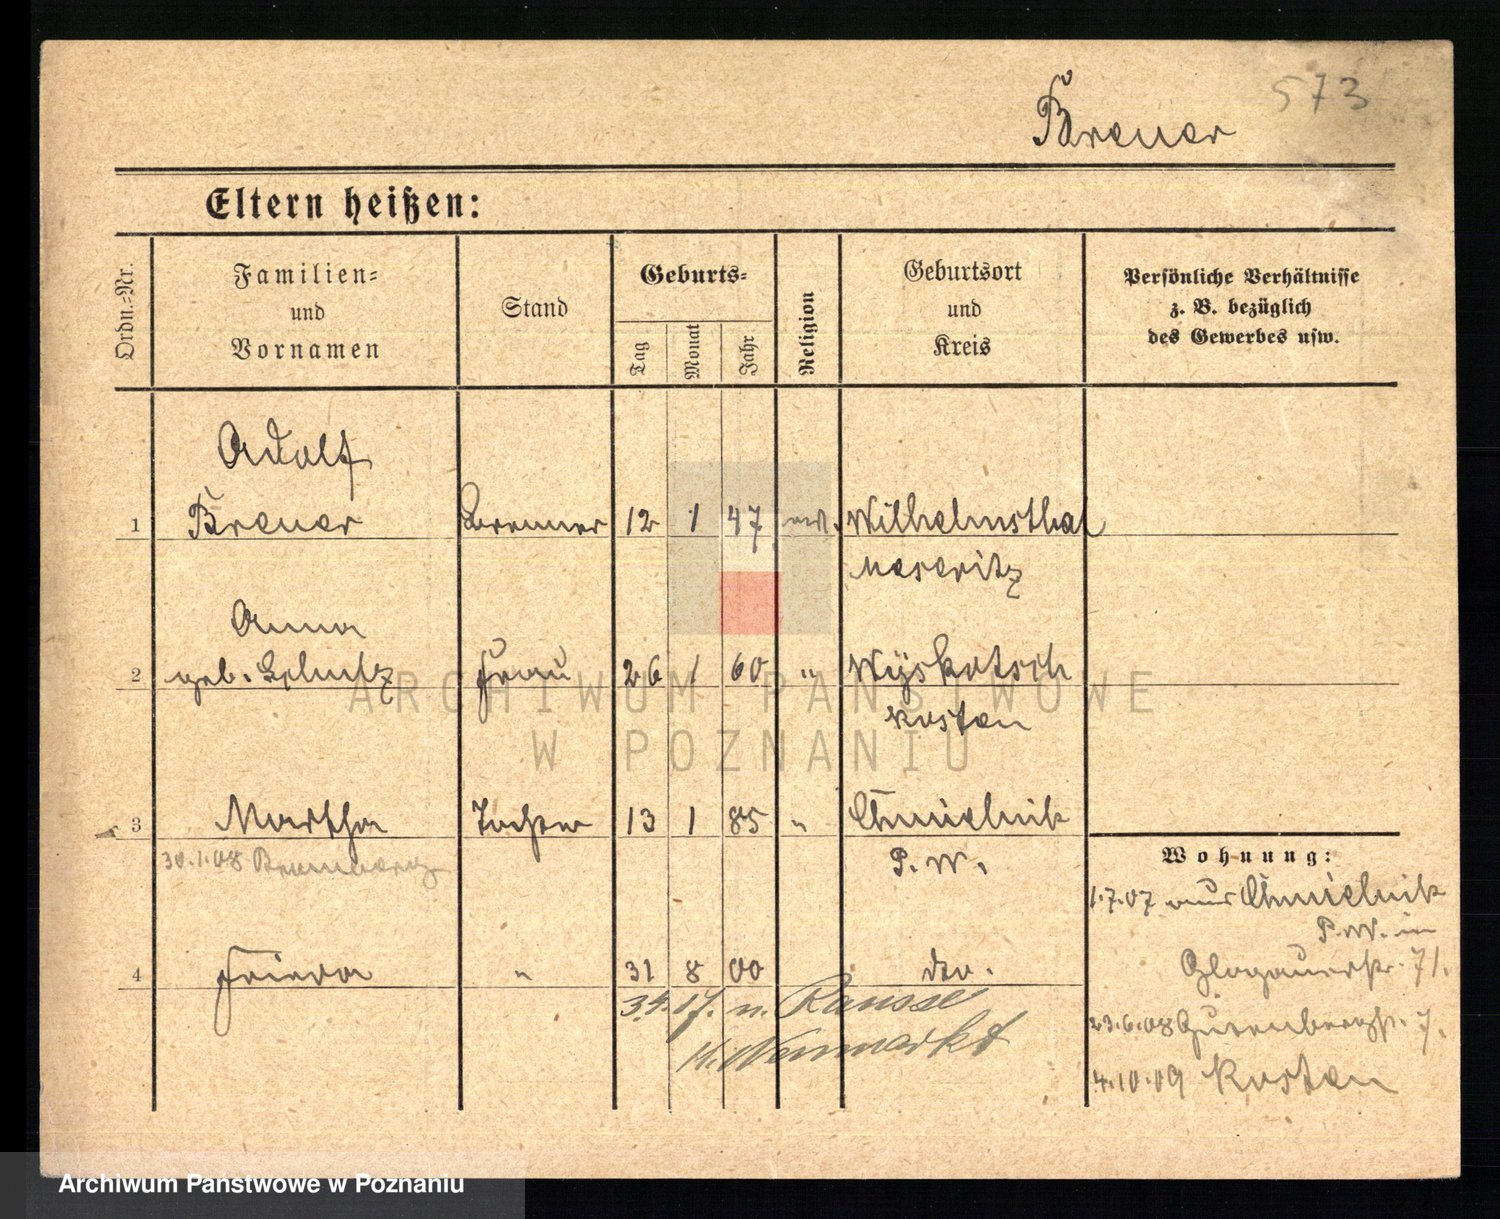 573
Brener
Eltern heißen:
Ordn.-Nr.
Familien-
und
Vornamen
Stand
Geburts-
Tag
Monat
Jahr
Religion
Geburtsort
und
Kreis
Persönliche Verhältnisse
z. B. bezüglich
des Gewerbes usw.
Adolf
1 Brener Brenner 12 1 47 Wilhelmsthal
Meseritz
Anna
2 geb. Frau 26 1 60 " Wyskotsch
Kosten
3 Martha Tochter 13 1 85 " Chmielnik
30.1.08
P. W.
4 Frieda " 31 8 00 do.
n. Rausse
Kr. Neumarkt
Wohnung:
1.7.07 aus Chmielnik
P. W. in
Glogauerstr. 71.
23.6.08 Gutenbergstr. 7.
4.10.09 Kosten
ARCHIWUM PAŃSTWOWE
W POZNANIU
Archiwum Państwowe w Poznaniu